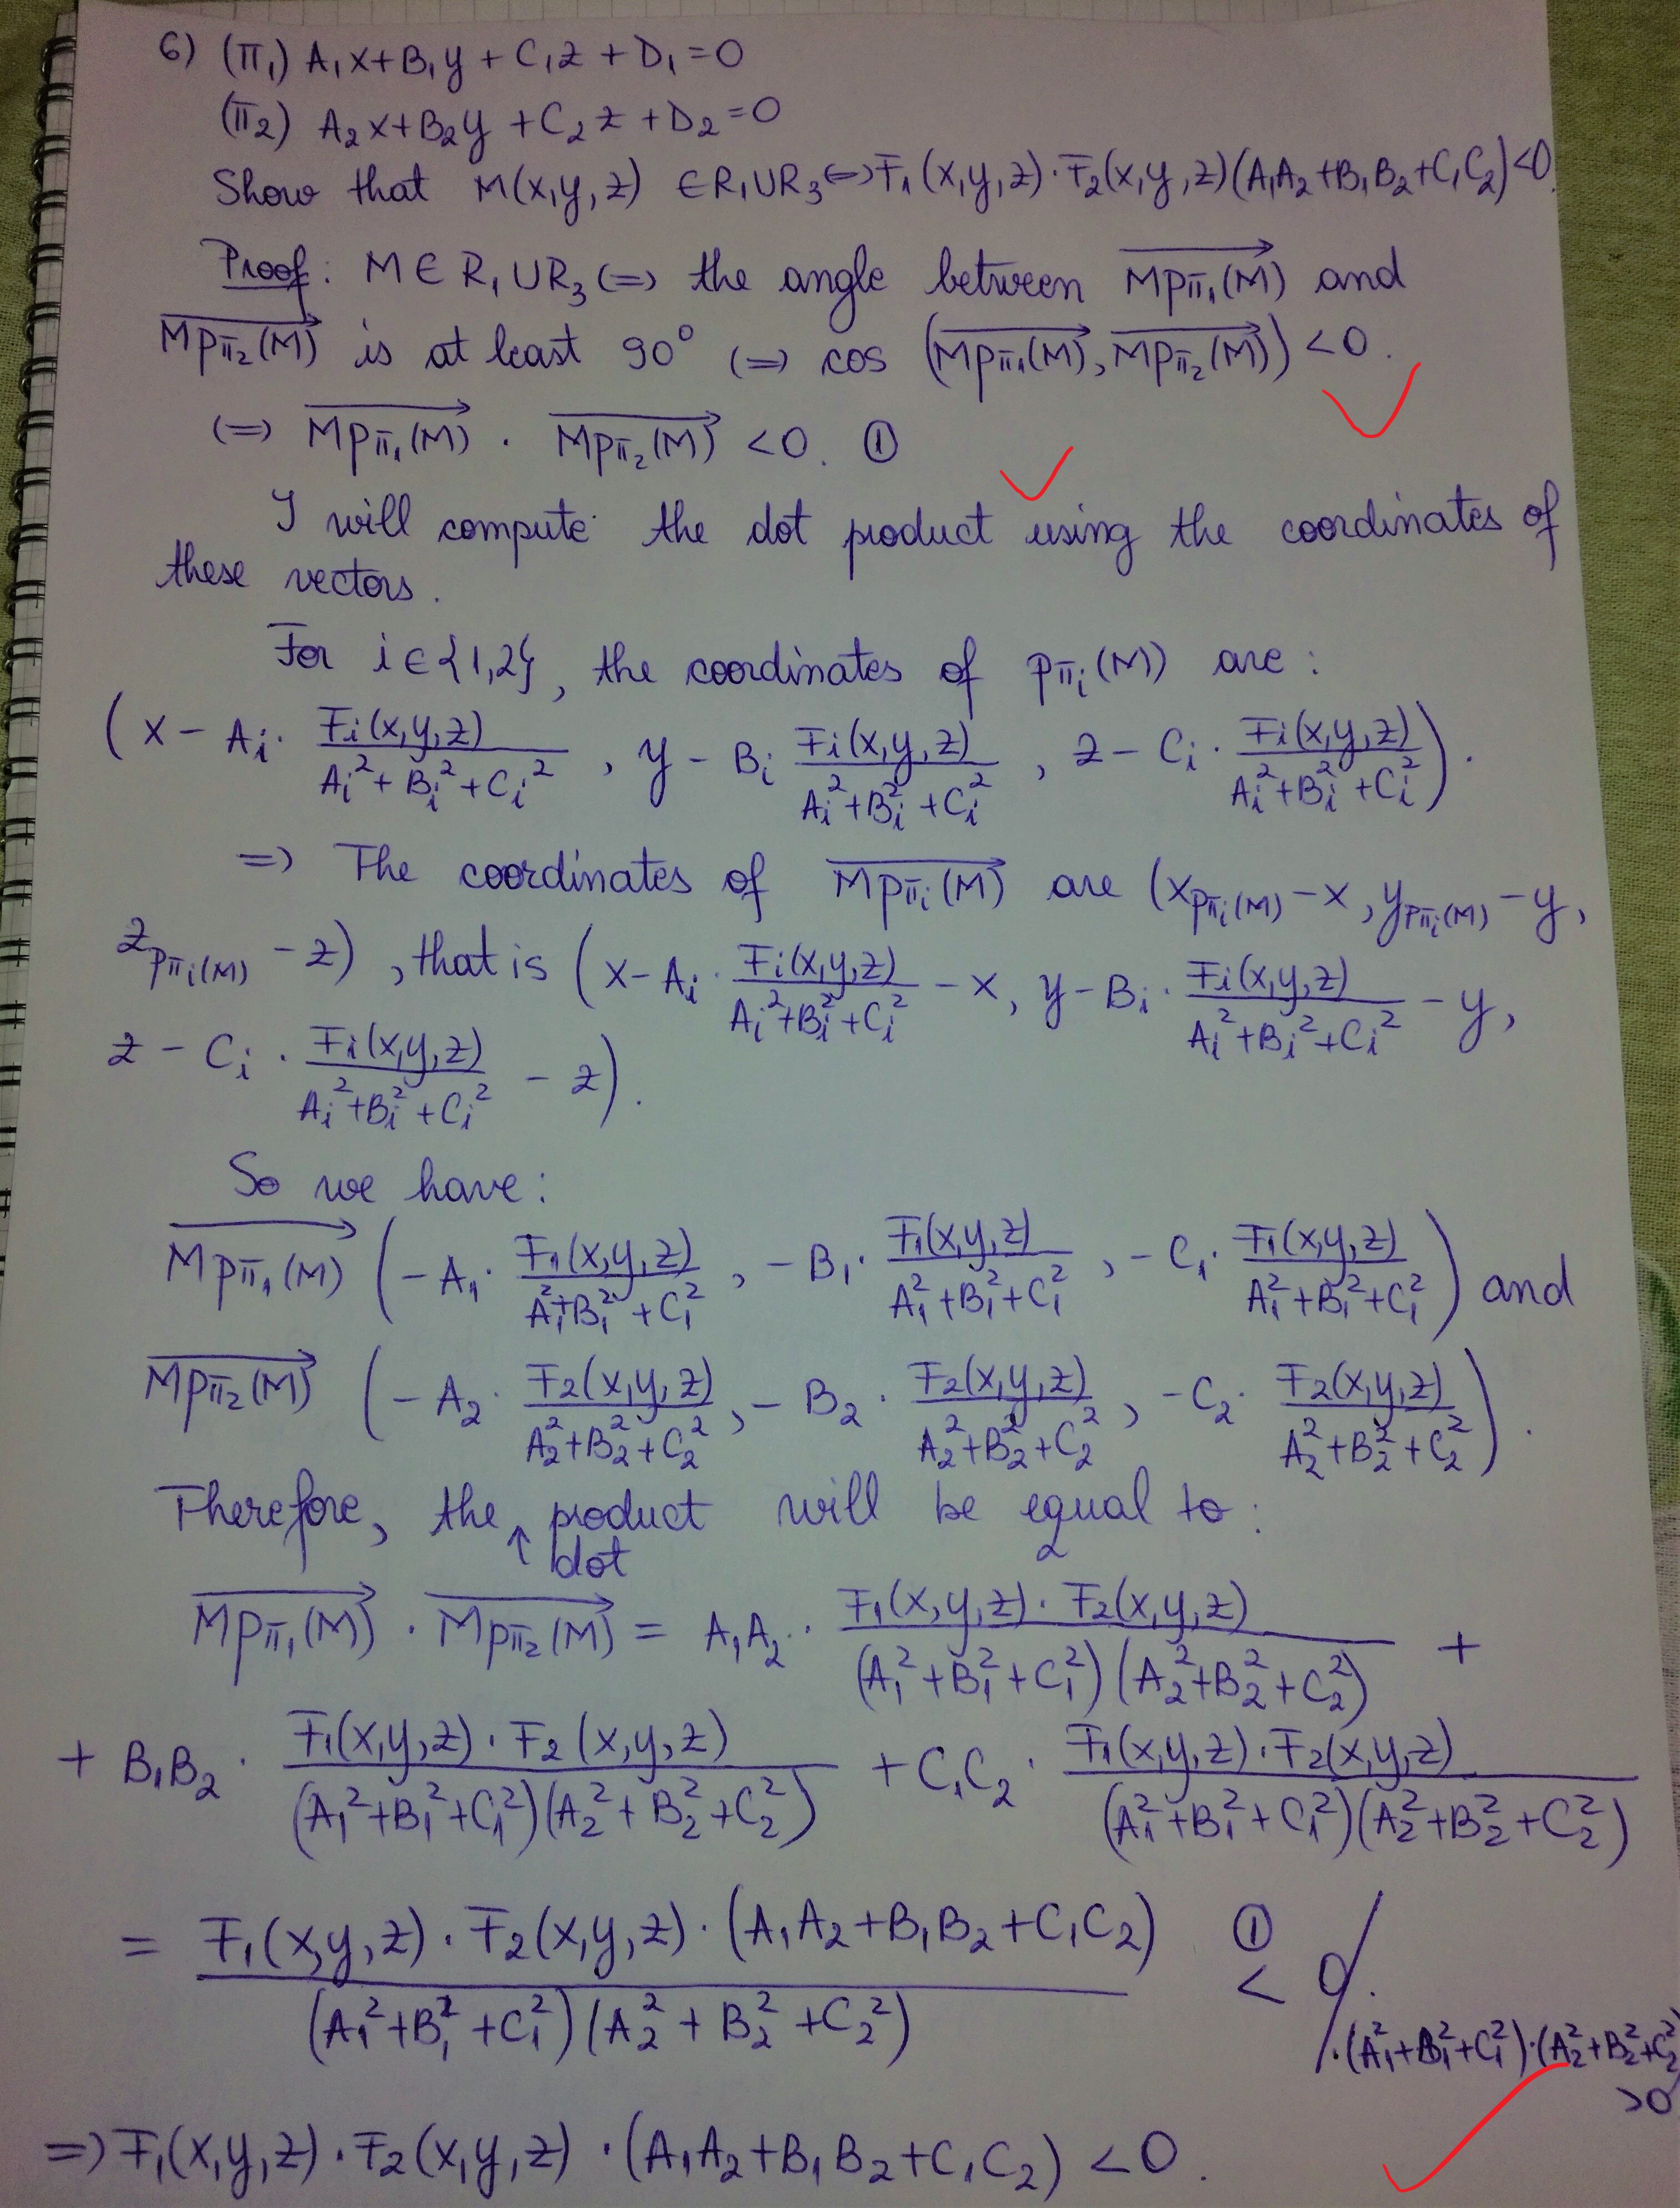 6) (π₁) A₁x+B₁y+C₁z+D₁=0
(π₂) A₂x+B₂y+C₂z+D₂=0
Show that M(x,y,z) ∈R₁∪R₃⇔F₁(x,y,z)·F₂(x,y,z)(A₁A₂+B₁B₂+C₁C₂)<0.
Proof: M∈R₁∪R₃⇔ the angle between →Mp_π₁(M) and
→Mp_π₂(M) is at least 90° ⇔ cos (→Mp_π₁(M), →Mp_π₂(M)) <0.
⇔ →Mp_π₁(M) · →Mp_π₂(M) <0. ①
I will compute the dot product using the coordinates of
these vectors.
For i∈{1,2}, the coordinates of p_πᵢ(M) are:
(x-Aᵢ· Fᵢ(x,y,z)/(Aᵢ²+Bᵢ²+Cᵢ²), y-Bᵢ Fᵢ(x,y,z)/(Aᵢ²+Bᵢ²+Cᵢ²), z-Cᵢ· Fᵢ(x,y,z)/(Aᵢ²+Bᵢ²+Cᵢ²)).
⇒ The coordinates of →Mp_πᵢ(M) are (x_p_πᵢ(M) -x, y_p_πᵢ(M) -y,
z_p_πᵢ(M) -z), that is (x-Aᵢ· Fᵢ(x,y,z)/(Aᵢ²+Bᵢ²+Cᵢ²) -x, y-Bᵢ· Fᵢ(x,y,z)/(Aᵢ²+Bᵢ²+Cᵢ²) -y,
z-Cᵢ· Fᵢ(x,y,z)/(Aᵢ²+Bᵢ²+Cᵢ²) -z).
So we have:
→Mp_π₁(M) (-A₁· F₁(x,y,z)/(A₁²+B₁²+C₁²), -B₁· F₁(x,y,z)/(A₁²+B₁²+C₁²), -C₁· F₁(x,y,z)/(A₁²+B₁²+C₁²)) and
→Mp_π₂(M) (-A₂· F₂(x,y,z)/(A₂²+B₂²+C₂²), -B₂· F₂(x,y,z)/(A₂²+B₂²+C₂²), -C₂· F₂(x,y,z)/(A₂²+B₂²+C₂²)).
Therefore, the ↑ product will be equal to:
dot
→Mp_π₁(M) · →Mp_π₂(M) = A₁A₂· F₁(x,y,z)·F₂(x,y,z)/((A₁²+B₁²+C₁²)(A₂²+B₂²+C₂²)) +
+ B₁B₂· F₁(x,y,z)·F₂(x,y,z)/((A₁²+B₁²+C₁²)(A₂²+B₂²+C₂²)) + C₁C₂· F₁(x,y,z)·F₂(x,y,z)/((A₁²+B₁²+C₁²)(A₂²+B₂²+C₂²))
= F₁(x,y,z)·F₂(x,y,z)·(A₁A₂+B₁B₂+C₁C₂)/((A₁²+B₁²+C₁²)(A₂²+B₂²+C₂²)) ① < 0. /·(A₁²+B₁²+C₁²)·(A₂²+B₂²+C₂²)
>0
⇒F₁(x,y,z)·F₂(x,y,z)·(A₁A₂+B₁B₂+C₁C₂) <0.